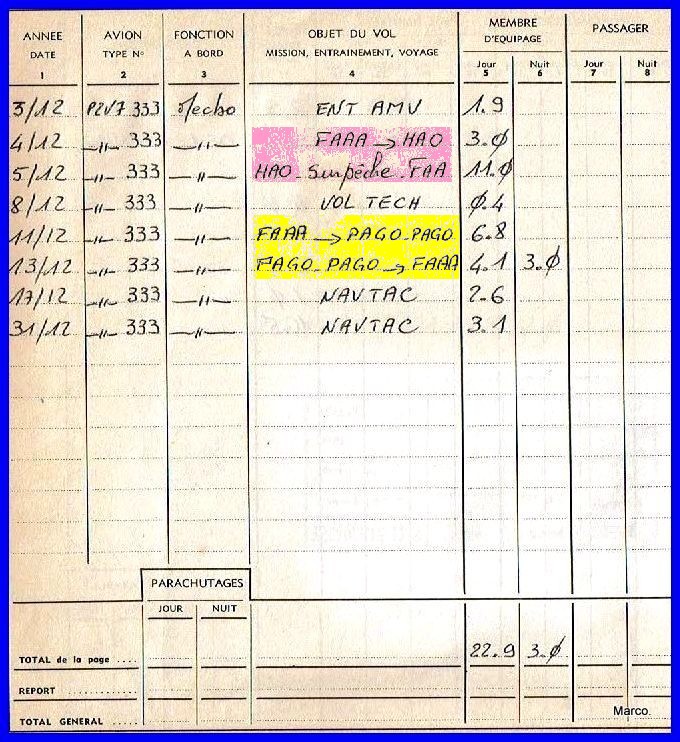 ANNEE AVION FONCTION OBJET DU VOL MEMBRE D'EQUIPAGE PASSAGER
DATE TYPE N° A BORD MISSION, ENTRAINEMENT, VOYAGE Jour Nuit Jour Nuit
1 2 3 4 5 6 7 8
3/12 P2V7 333 Mecbo ENT AMV 1.9
4/12 -"- 333 -"- FAAA → HAO 3.0
5/12 -"- 333 -"- HAO - Surpêche - FAA 11.0
8/12 -"- 333 -"- VOL TECH 0.4
11/12 -"- 333 -"- FAAA → PAGO-PAGO 6.8
13/12 -"- 333 -"- PAGO-PAGO → FAAA 4.1 3.0
17/12 -"- 333 -"- NAVTAC 2.6
31/12 -"- 333 -"- NAVTAC 3.1
PARACHUTAGES
JOUR NUIT
TOTAL de la page .... 22.9 3.0
REPORT
TOTAL GENERAL
Marco.